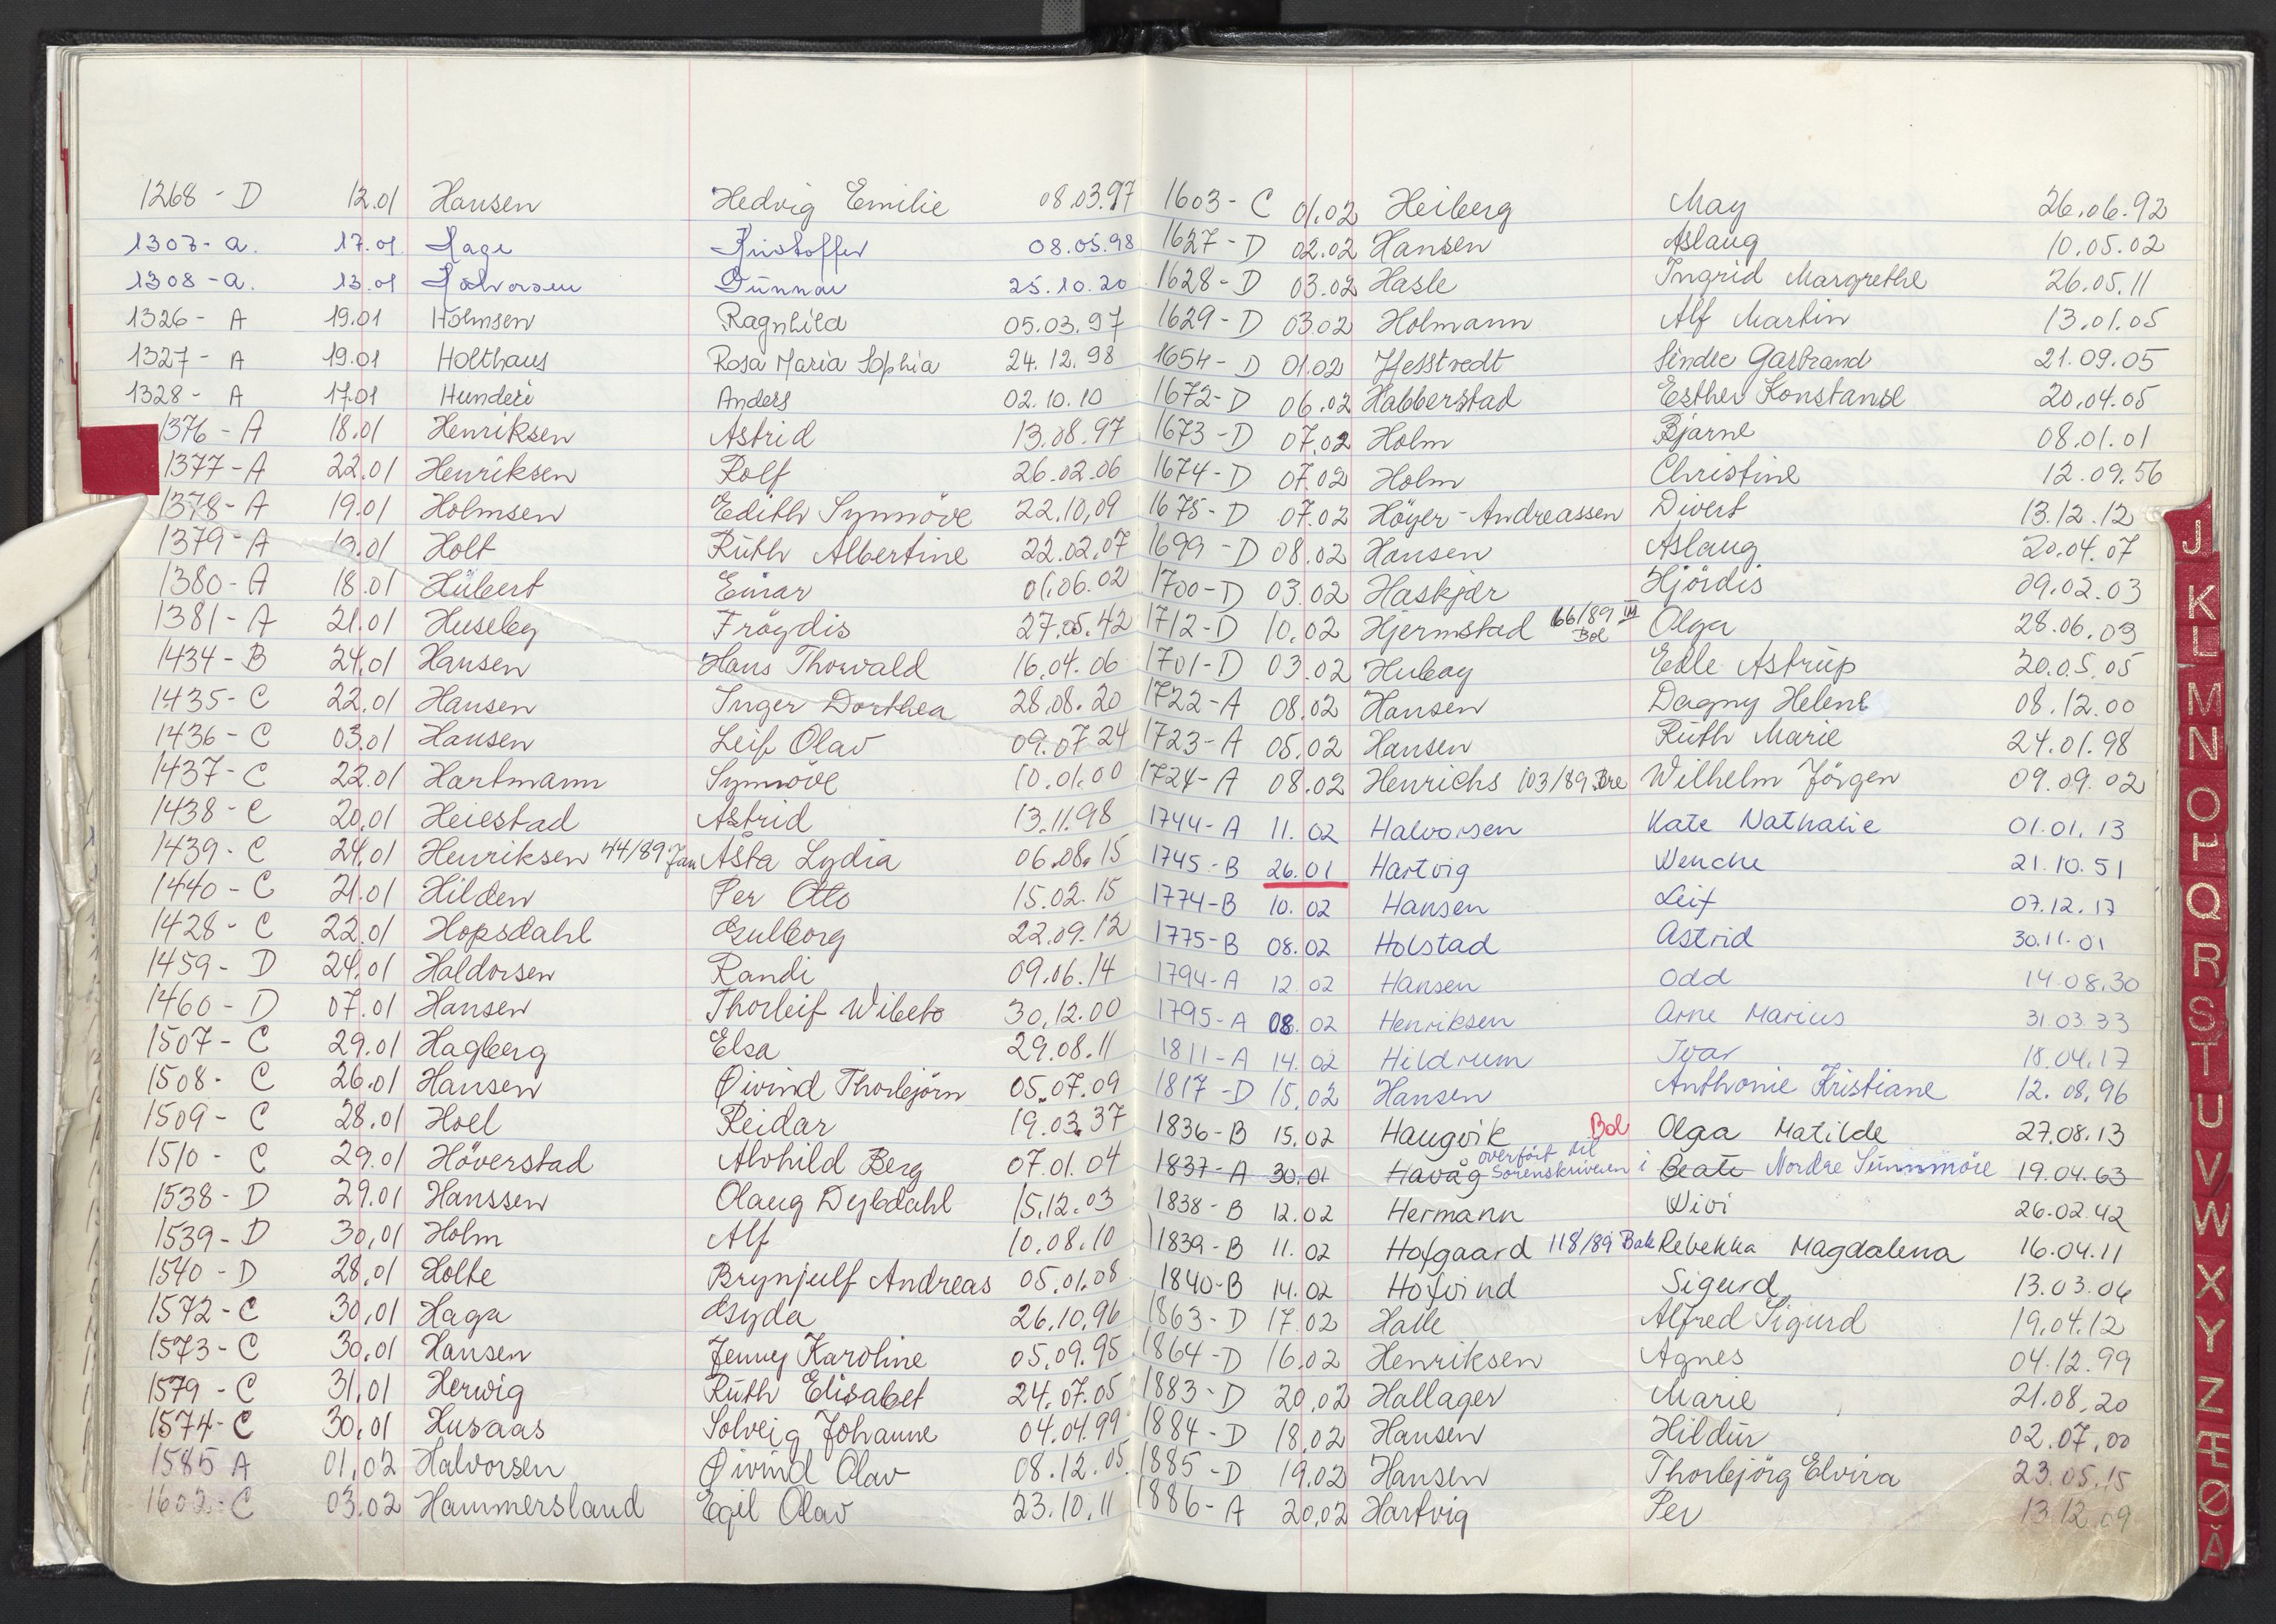 1268 - D 12.01 Hansen Hedvig Emilie 08.03.97
1307 - a. 17.01. Hage Kristoffer 08.05.98
1308 - a. 13.01 Halvorsen Gunnar 25.10.20
1326 - A 19.01 Holmsen Ragnhild 05.03.97
1327 - A 19.01 Holthaus Rosa Maria Sophia 24.12.98
1328 - A 17.01 Hunderi Anders 02.10.10
1376 - A 18.01 Henriksen Astrid 13.08.97
1377 - A 22.01 Henriksen Rolf 26.02.06
1378 - A 19.01 Holmsen Edith Synnöve 22.10.09
1379 - A 19.01 Holt Ruth Albertine 22.02.07
1380 - A 18.01 Hübert Einar 01.06.02
1381 - A 21.01 Huseby Fröydis 27.05.42
1434 - B 24.01 Hansen Hans Thorvald 16.04.06
1435 - C 22.01 Hansen Inger Dorthea 28.08.20
1436 - C 03.01 Hansen Leif Olav 09.07.24
1437 - C 22.01 Hartmann Synnöve 10.01.00
1438 - C 20.01 Heiestad Astrid 13.11.98
1439 - C 24.01 Henriksen 44/89 Jan Åsta Lydia 06.08.15
1440 - C 21.01 Hilden Per Otto 15.02.15
1428 - C 22.01 Hopsdahl Gulborg 22.09.12
1459 - D 24.01 Haldorsen Randi 09.06.14
1460 - D 07.01 Hansen Thorleif Wibeto 30.12.00
1507 - C 29.01 Hagberg Elsa 29.08.11
1508 - C 26.01 Hansen Øivind Thorbjörn 05.07.09
1509 - C 28.01 Hoel Reidar 19.03.37
1510 - C 29.01 Höverstad Alvhild Berg 07.01.04
1538 - D 29.01 Hanssen Olaug Dybdahl 15.12.03
1539 - D 30.01 Holm Alf 10.08.10
1540 - D 28.01 Holte Brynjulf Andreas 05.01.08
1572 - C 30.01 Haga Gyda 26.10.96
1573 - C 30.01 Hansen Jenny Karoline 05.09.95
1579 - C 31.01 Herwig Ruth Elisabet 24.07.05
1574 - C 30.01 Husaas Solveig Johanne 04.04.99
1585 A 01.02 Halvorsen Øivind Olav 08.12.05
1602 - C 03.02 Hammersland Egil Olav 23.10.11
1603 - C 01.02 Heiberg May 26.06.92
1627 - D 02.02 Hansen Aslaug 10.05.02
1628 - D 03.02 Hasle Ingrid Margrethe 26.05.11
1629 - D 03.02 Holmann Alf Martin 13.01.05
1654 - D 01.02 Hesstvedt Sindre Gasbrand 21.09.05
1672 - D 06.02 Habberstad Esther Konstanse 20.04.05
1673 - D 07.02 Holm Bjarne 08.01.01
1674 - D 07.02 Holm Christine 12.09.56
1675 - D 07.02 Höyer-Andreassen Divert 13.12.12
1699 - D 08.02 Hansen Aslaug 20.04.07
1700 - D 03.02 Haskjær Hjördis 09.02.03
1712 - D 10.02 Hjermstad 66/89 III Bol Olga 28.06.09
1701 - D 03.02 Hubay Edle Astrup 20.05.05
1722 - A 08.02 Hansen Dagny Helene 08.12.00
1723 - A 05.02 Hansen Ruth Marie 24.01.98
1724 - A 08.02 Henrichs 103/89 Bre Wilhelm Jörgen 09.09.02
1744 - A 11.02 Halvorsen Kate Nathalie 01.01.13
1745 - B 26.01 Hartvig Wenche 21.10.51
1774 - B 10.02 Hansen Leif 07.12.17
1775 - B 08.02 Holstad Astrid 30.11.01
1794 - A 12.02 Hansen Odd 14.08.30
1795 - A 08.02 Henriksen Arne Marius 31.03.33
1811 - A 14.02 Hildrum Ivar 18.04.17
1817 - D 15.02 Hansen Anthonie Kristiane 12.08.96
1836 - B 15.02 Haugvik Bol Olga Matilde 27.08.13
1837 - A 30.01 Havåg overfört til Sorenskriveren i Beate Nordre Sunnmöre 19.04.63
1838 - B 12.02 Hermann Wivi 26.02.42
1839 - B 11.02 Hofgaard 118/89 Bak Rebekka Magdalena 16.04.11
1840 - B 14.02 Hofvind Sigurd 13.03.06
1863 - D 17.02 Halle Alfred Sigurd 19.04.12
1864 - D 16.02 Henriksen Agnes 04.12.99
1883 - D 20.02 Hallager Marie 21.08.20
1884 - D 18.02 Hansen Hildur 02.07.00
1885 - D 19.02 Hansen Thorbjörg Elvira 23.05.15
1886 - A 20.02 Hartvig Per 13.12.09
J
K
L
M
N
O
P
Q
R
S
T
U
V
W
X
Y
Z
Æ
Ø
Å